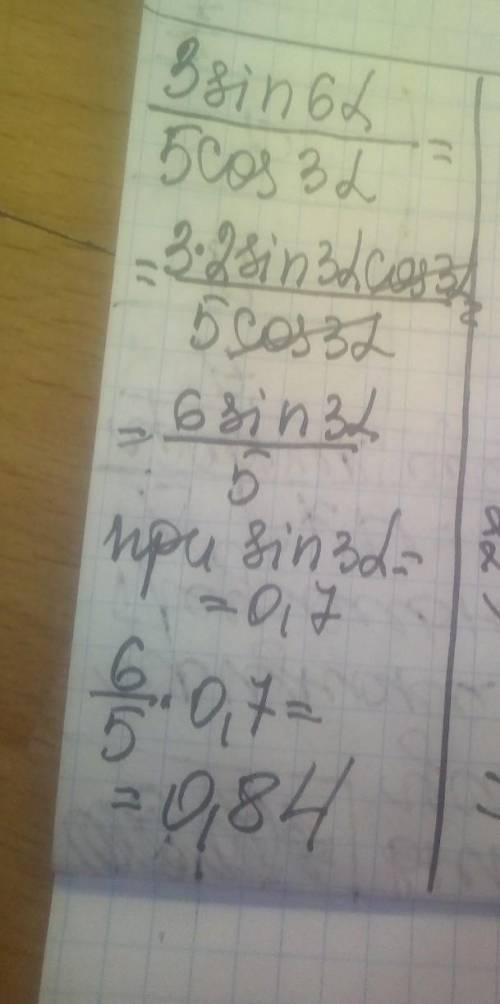 3sin6α
5cos3α =
= 3·2sin3αcos3α
5cos3α =
= 6sin3α
5
при sin3α=
=0,7
6/5·0,7=
=0,84